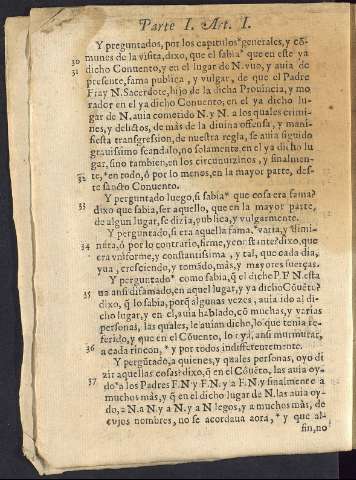 Parte I. Art. I.
Y preguntados, por los capitulos*generales, y cõ-
munes de la visita, dixo, que el sabia* que en este ya
30
dicho Conuento, y en el lugar de N. vuo, y auia de
31
presente, fama publica, y vulgar, de que el Padre
Fray N. Sacerdote, hijo de la dicha Prouincia, y mo
rador en el ya dicho Conuento, en el ya dicho lu-
gar de N. auia cometido N. y N. a los quales crimi-
nes, y delictos, de mas de la diuina ofensa, y mani-
fiesta transgression, de nuestra regla, se auia seguido
grauissimo scandalo, no solamente en el ya dicho lu
gar, sino tambien, en los circunuizinos, y finalmen-
te, *en todo, ò por lo menos, en la mayor parte, des-
32
te sancto Conuento.
Y preguntado luego, si sabia* que cosa era fama?
33
dixo que sabia, ser aquello, que en la mayor parte,
de algun lugar, se dizia, publica, y vulgarmente.
Y preguntado, si era aquella fama, *varia, y dimi-
nuta, ò por lo contrario, firme, y constante? dixo, que
34
era vniforme, y constantissima, y tal, que cada dia,
yua, cresciendo, y tomãdo, màs, y mayores fuerças.
Y preguntado* como sabia, q̃ el dicho P. F N. esta
ua ansi disamado, en aquel lugar, y ya dicho Cõuẽto?
35
dixo, q̃ lo sabia, porq̃ algunas vezes, auia ido al di-
cho lugar, y en el, auia hablado, cõ muchas, y varias
personas, las quales, le auian dicho, lo que tenia re-
ferido, y que en el Cõuento, lo oya, ansi murmurar,
a cada rincon, * y por todos indifferentemente.
36
Y pergũtado, a quienes, y quales personas, oyo di
zir aquellas cosas? dixo, q̃ en el Cõuẽto, las auia oy-
do*a los Padres F.N. y F.N. y a F.N. y finalmente a
37
muchos màs, y q̃ en el dicho lugar de N. las auia oy-
do, a N. a N. y a N. y a N legos, y a muchos màs, de
cujos nombres, no se acordaua aora, * y que al-
fin, no